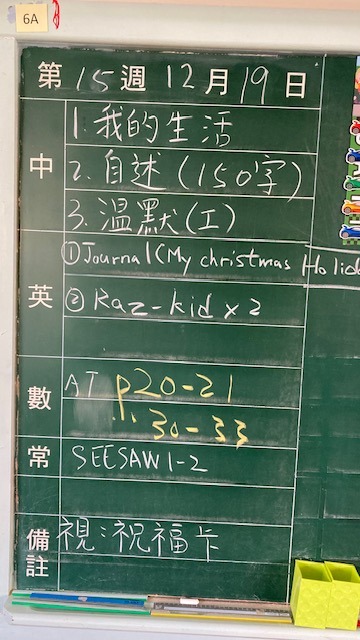 6A
第15週12月19日
中
1. 我的生活
2. 自述(150字)
3. 溫默(工)
英
① Journal(My christmas Holid
② Raz-kid x 2
數
AT p.20-21
p.30-33
常
SEESAW 1-2
備註
視:祝福卡